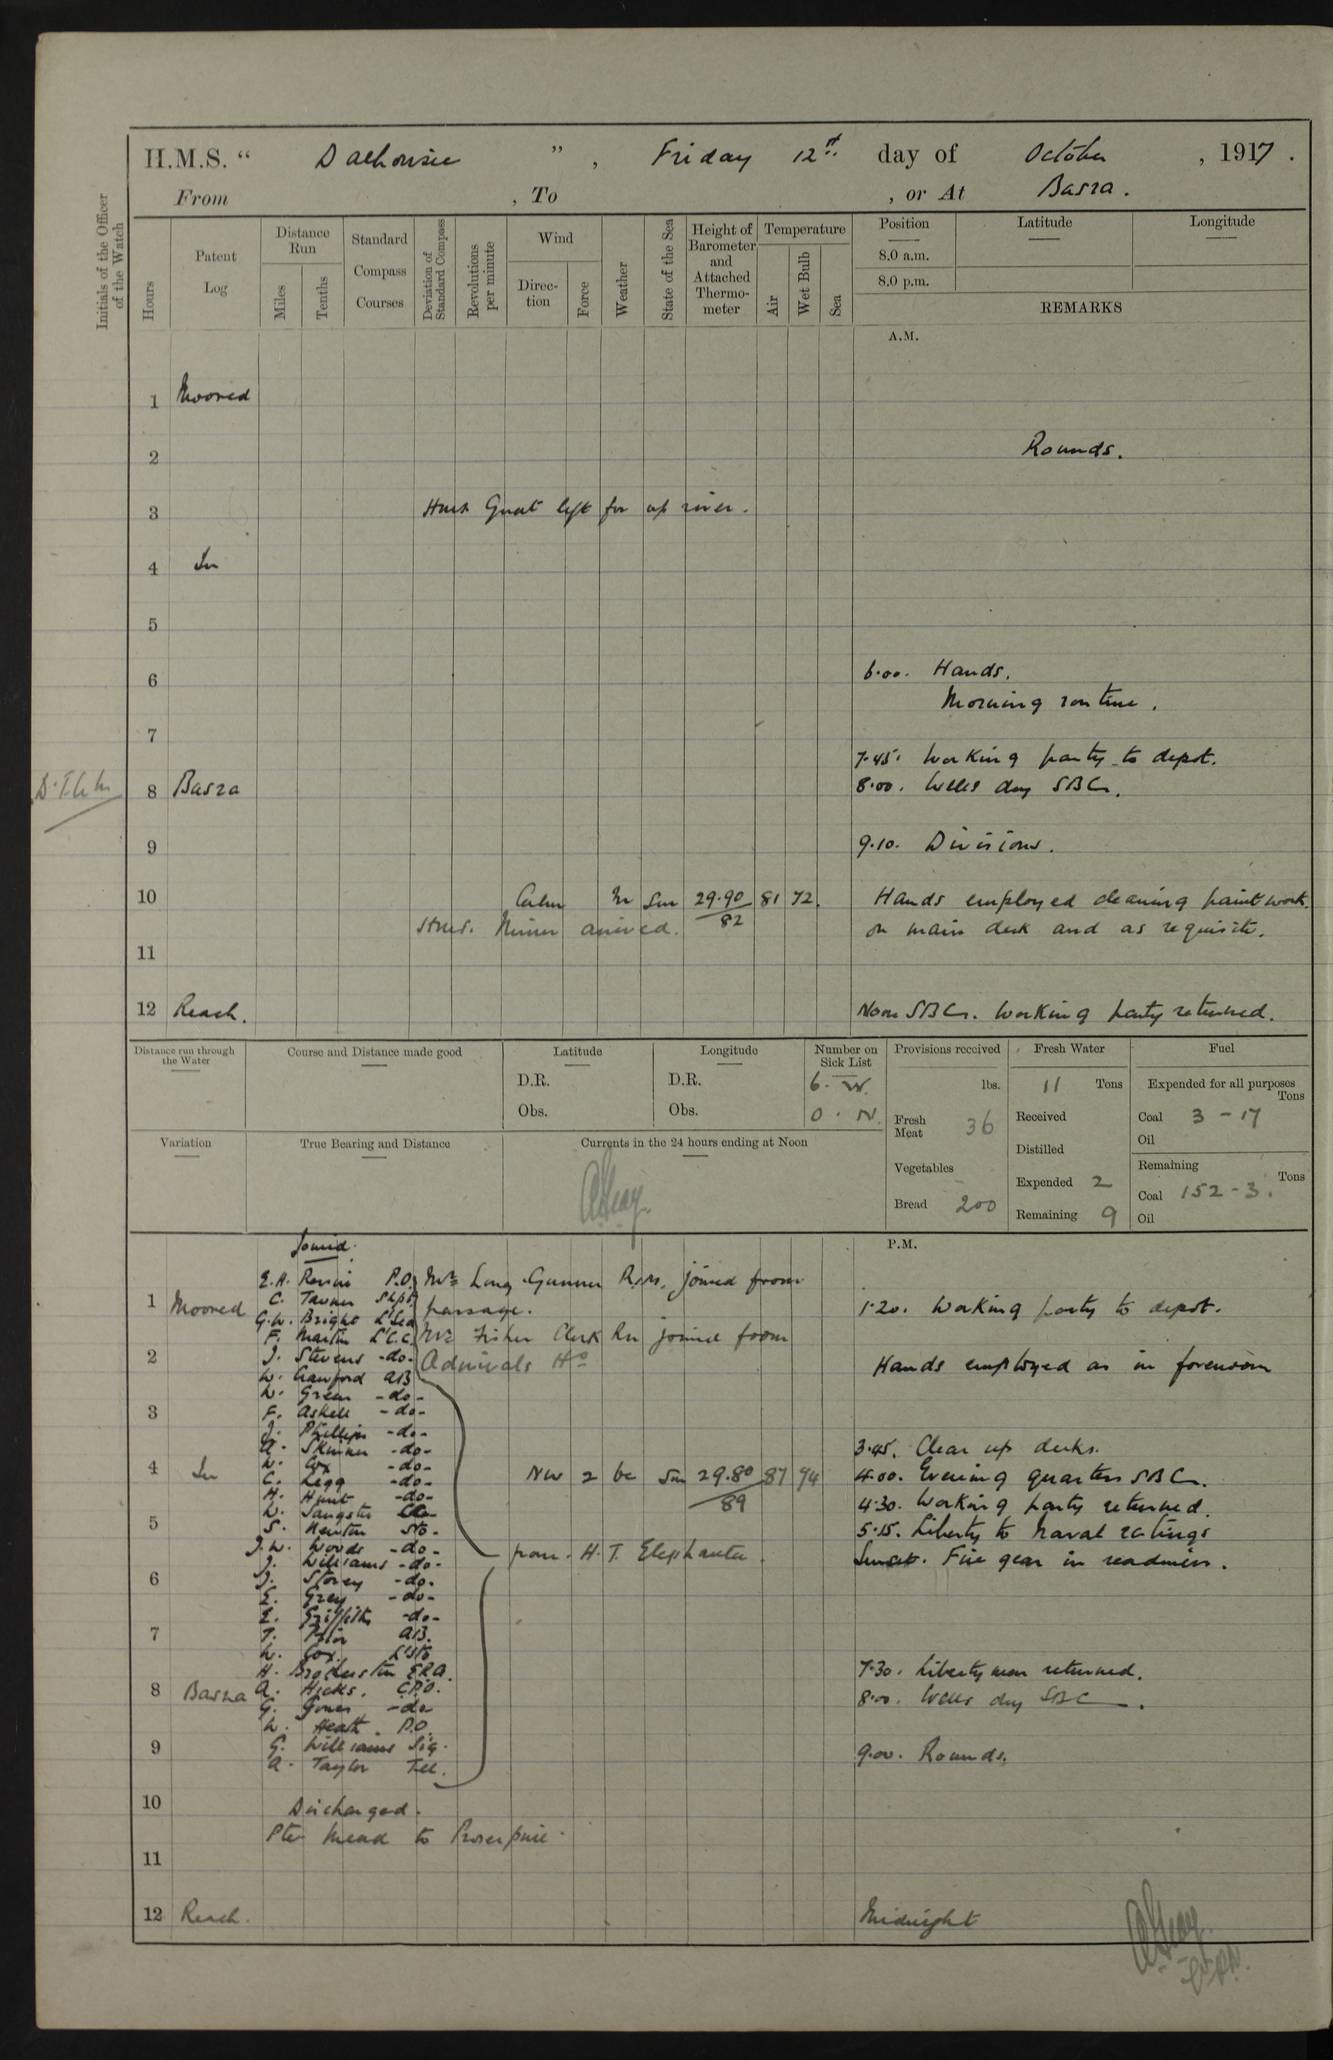 H.M.S. " Dalhousie ", Friday 12th day of October, 1917.
From , To , or At Basra.
Initials of the Officer of the Watch
Hours
Patent Log
Distance Run
Miles
Tenths
Standard Compass Courses
Deviation of Standard Compass
Revolutions per minute
Wind
Direction
Force
Weather
State of the Sea
Height of Barometer and Attached Thermometer
Temperature
Air
Wet Bulb
Sea
Position
8.0 a.m.
8.0 p.m.
Latitude
Longitude
REMARKS
A.M.
1 Moored
2 Rounds.
3 Gnat left for up river.
4 In
5
6 6.00. Hands.
Morning routine.
7
7.45. Working party to depot.
8 Basra 8.00. Wells dny SBC.
9 9.10. Divisions.
10 Calm m Sm 29.90 81 72. Hands employed cleaning paintwork
82
Miner arrived. on main deck and as requisite.
11
12 Reach. Noon SBC. Working party returned.
Distance run through the Water
Course and Distance made good
Latitude
D.R.
Obs.
Longitude
D.R.
Obs.
Number on Sick List
6. W.
0. N.
Provisions received
lbs.
Fresh Meat 36
Vegetables
Bread 200
Fresh Water
11 Tons
Received
Distilled
Expended 2
Remaining 9
Fuel
Expended for all purposes
Tons
Coal 3 - 17
Oil
Remaining
Tons
Coal 152 - 3.
Oil
Variation
True Bearing and Distance
Currents in the 24 hours ending at Noon
P.M.
Joined.
E.A. P.O. Mr Long Gunner R.N. joined from
1 Moored C. passage. 1.20. Working party to depot.
G.W. Bright
F. Martin L'C.C. Mr Fisher Clerk RN joined from
2 J. Stevens -do- Admirals Hands employed as in forenoon
W. Crawford AB
W. Green -do-
3 F. Askell -do-
J. Phillips -do-
A. Skinner -do- 3.45. Clear up decks.
W. Cox -do-
4 In C. Legg -do- NW 2 bc Sm 29.80 87 74 4.00. Evening quarters SBC.
89
H. Hunt -do- 4.30. Working party returned.
W. Sangster
5 S. Sto. 5.15. Liberty to Naval ratings
J.W. Woods -do- from H.T. Elephanta. Sunset. Fire gear in readiness.
J. Williams -do-
6 J. Storey -do-
E. Grey -do-
E. Griffiths -do-
7 T. AB.
W. Cox.
H. E.R.A. 7.30. Liberty men returned.
8 Basra A. Hicks. C.P.O. 8.00. Wells dny SBC.
G. Jones -do-
W. Heath. P.O.
9 G. Williams Sig. 9.00. Rounds.
A. Taylor Tel.
10 Discharged.
Pte Mead to Proserpine.
11
12 Reach. Midnight